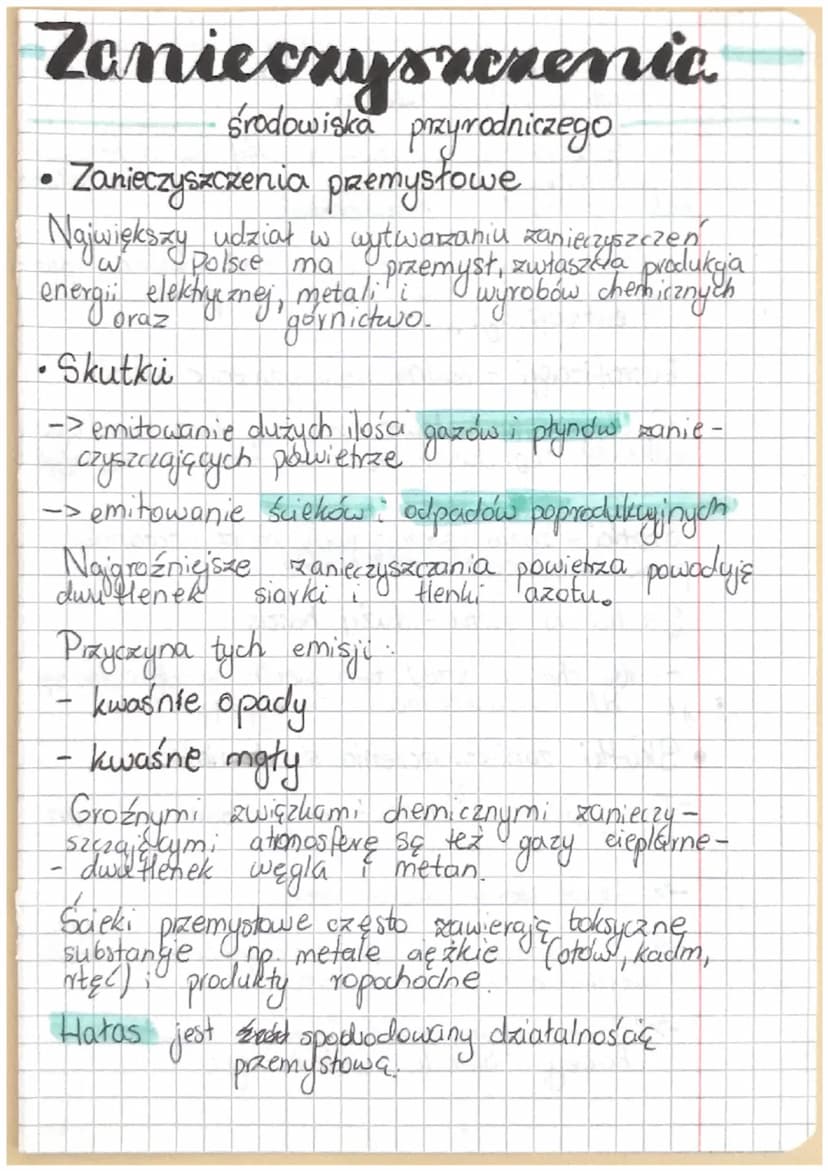 Zanieczyszczenia
środowiska przyrodniczego
• Zanieczyszczenia przemysłowe
Największy udział w wytwarzaniu zanieczyszczeń
w Polsce ma przemysł, zwłaszcza produkcja
energii elektrycznej, metali i wyrobów chemicznych
oraz górnictwo.
• Skutki
-> emitowanie dużych ilości gazów i płynów zanie-
czyszczających powietrze
-> emitowanie ścieków i odpadów poprodukcyjnych
Najgroźniejsze zanieczyszczania powietrza powodują
dwutlenek siarki i tlenki azotu.
Przyczyna tych emisji:
- kwaśnie opady
- kwaśne mgły
Groźnymi związkami chemicznymi zanieczy-
szczającymi atmosferę są też gazy cieplarne-
- dwutlenek węgla i metan.
Ścieki przemysłowe często zawierają toksyczne
substancje np. metale ciężkie (ołów, kadm,
rtęć) i produkty ropochodne.
Hałas jest spowodowany działalnością
przemysłową.